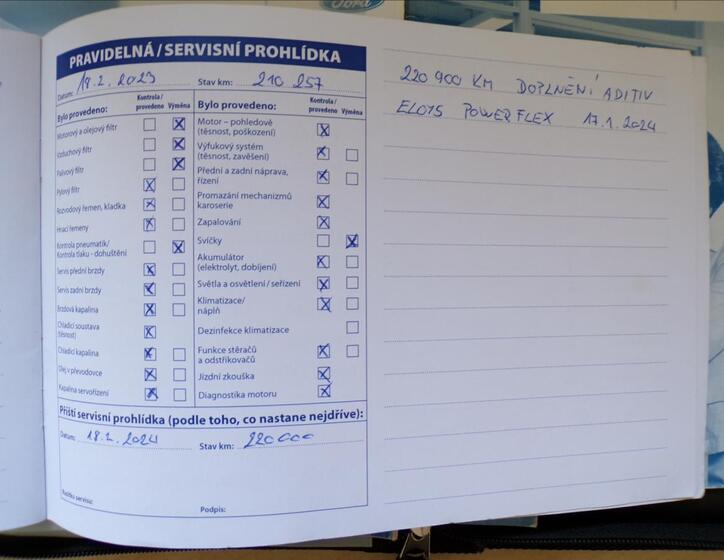 Ford
PRAVIDELNÁ / SERVISNÍ PROHLÍDKA
Datum: 18.2. 2023 Stav km: 210 257
Bylo provedeno: Kontrola / provedeno Výměna
Motorový a olejový filtr
Vzduchový filtr
Palivový filtr
Pylový filtr
Rozvodový řemen, kladka
Hnací řemeny
Kontrola pneumatik/
Kontrola tlaku - dohuštění
Servis přední brzdy
Servis zadní brzdy
Brzdová kapalina
Chladicí soustava
(těsnost)
Chladicí kapalina
Olej v převodovce
Kapalina servořízení
Bylo provedeno: Kontrola / provedeno Výměna
Motor – pohledově
(těsnost, poškození)
Výfukový systém
(těsnost, zavěšení)
Přední a zadní náprava,
řízení
Promazání mechanizmů
karoserie
Zapalování
Svíčky
Akumulátor
(elektrolyt, dobíjení)
Světla a osvětlení / seřízení
Klimatizace/
náplň
Dezinfekce klimatizace
Funkce stěračů
a odstřikovačů
Jízdní zkouška
Diagnostika motoru
Příští servisní prohlídka (podle toho, co nastane nejdříve):
Datum: 18.2. 2024 Stav km: 220 000
Razítko servisu: Podpis:
220 900 KM DOPLNĚNÍ ADITIV
ELO15 POWERFLEX 17.1.2024